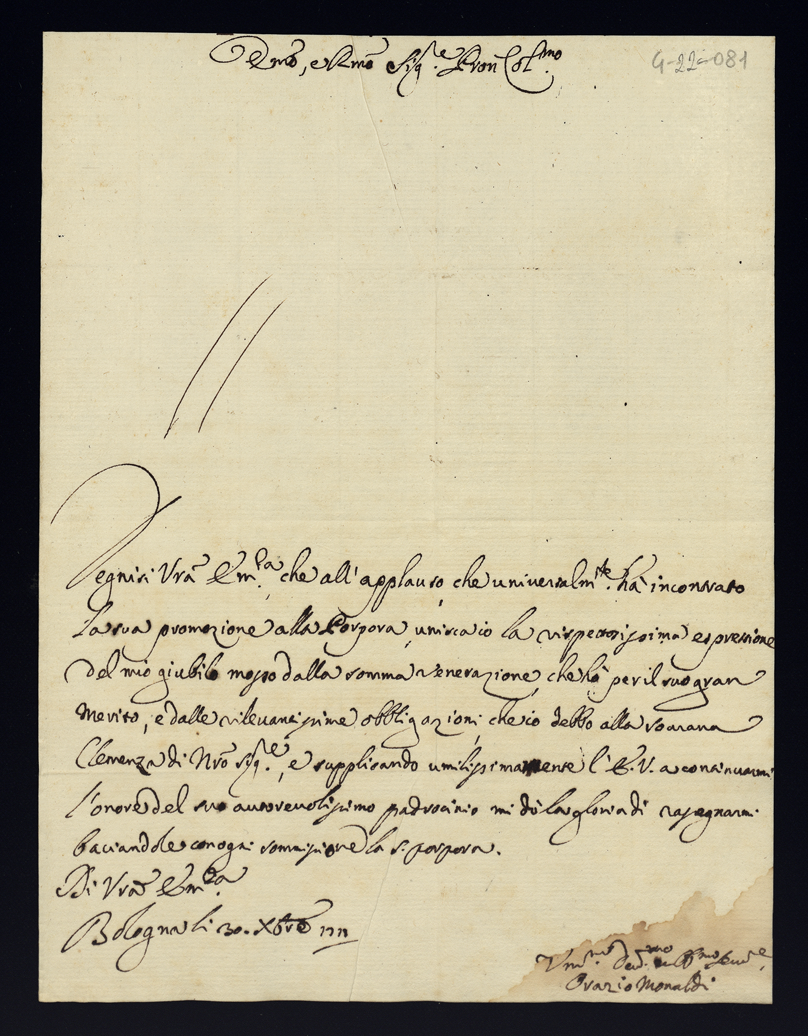 Emō, e Rmō Sig.re Pron Col.mo
G-22-081
Degnisi Vrã Em.za che all'applauso, che universalm.te hà incontrato
la sua promozione alla Porpora, unisca io la rispettosissima espressione
del mio giubilo mosso dalla somma venerazione, che hò per il suo gran
Merito, e dalle rilevantissime obbligazioni, che io debbo alla sovrana
Clemenza di Nrõ Sig.re, e supplicando umilissimamente l'E.V. a continuarmi
l'onore del suo autorevolissimo padrocinio mi dò la gloria di rassegnarmi
baciandole con ogni sommissione la S. porpora.
Di Vrã Em.za
Bologna li 30. Xbre
Um.mo Dev.mo Obb.mo Serv.re
Orazio Monaldi